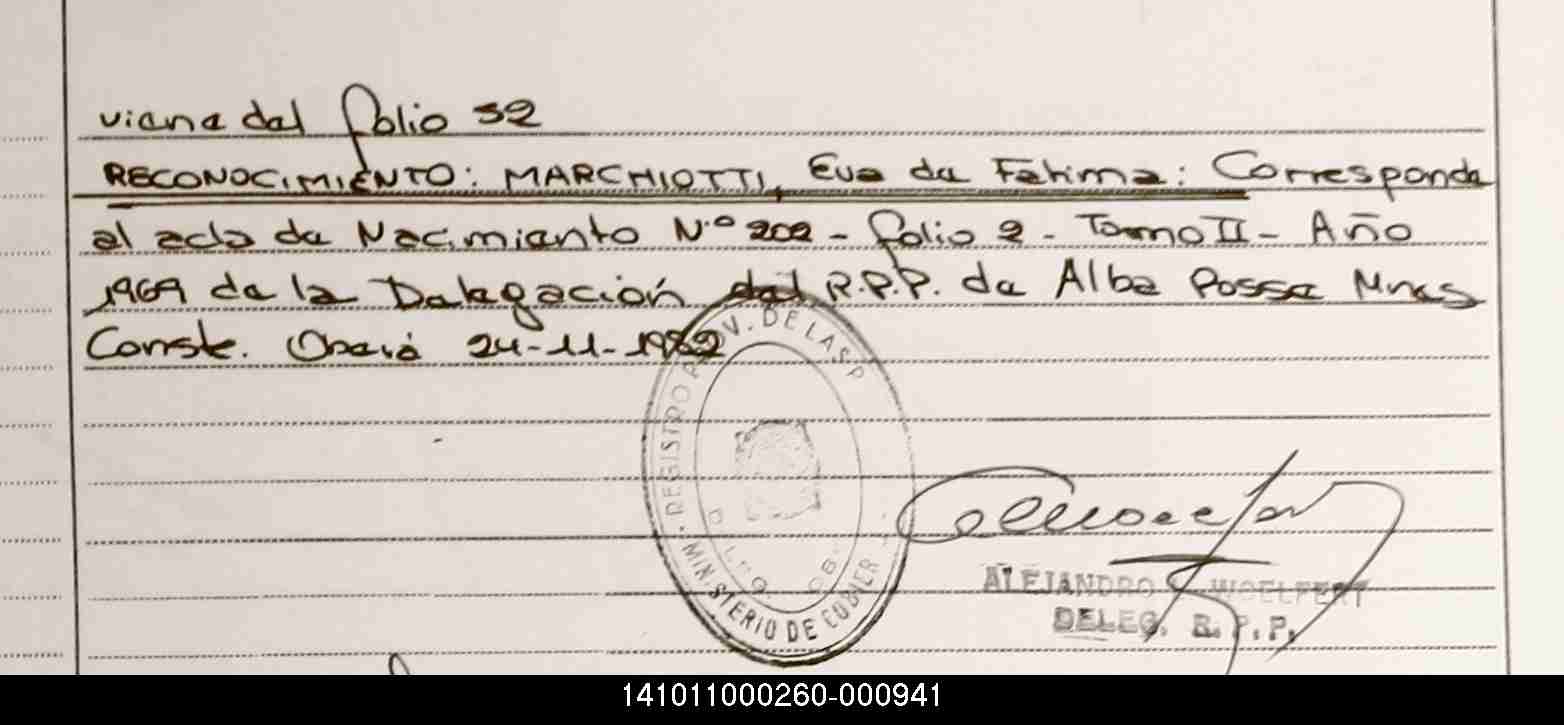 viene del folio 52
RECONOCIMIENTO: MARCHIOTTI, Eva de Fatima: Corresponde
al acta de Nacimiento N.º 202 - folio 2 - Tomo II - Año
1969 de la Delegación del R.P.P. de Alba Posse Mnes
Conste. Oberá 24-11-1982
REGISTRO PROV. DE LAS P.
MINISTERIO DE GOBIER
ALEJANDRO WOELFERT
DELEG. R.P.P.
141011000260-000941